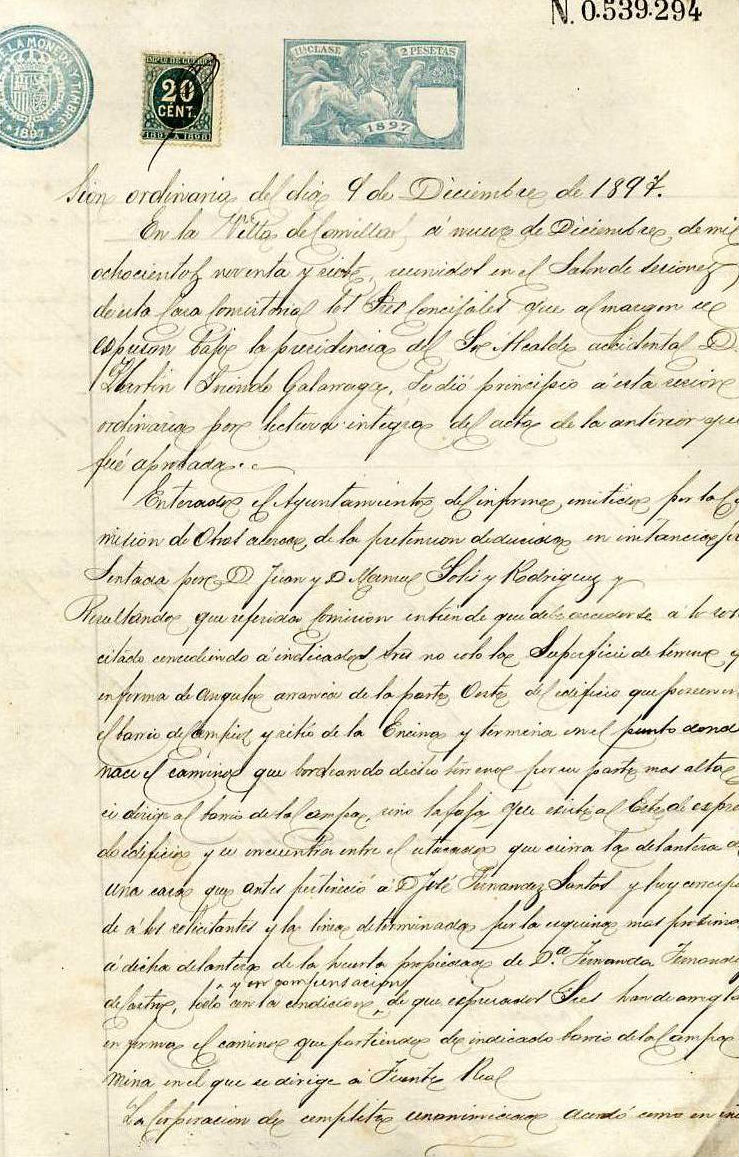 N. 0.539.294
LA MONEDA Y TIMBRE
1897
IMPTO DE GUERRA
20
CENT.
1897 A 1898
11ª CLASE 2 PESETAS
1897
Sion ordinaria del dia 9 de Diciembre de 1897.
En la Villa de Comillas á nueve de Diciembre de mil
ochocientos noventa y siete, reunidos en el Salon de sesiones
de esta Casa Consistorial los Sres Concejales que al margen se
espresan bajo la presidencia del Sr Alcalde accidental D.
Martin Iriondo Galarraga, se dió principio á esta sesion
ordinaria por lectura integra del acta de la anterior que
fué aprobada.
Enterado el Ayuntamiento del informe emitido por la Co
mision de Obras acerca de la pretension deducida en instancia pre
sentada por D Juan y D Manuel Solis y Rodriguez y
Resultando que referida Comision entiende que debe accederse a lo soli
citado concediendo á indicados Sres no solo la Superficie de terreno q
en forma de angulo arranca de la parte Oeste del edificio que poseen en
el barrio de Campios y sitio de la Encina y termina en el punto donde
nace el camino que bordeando dicho terreno por su parte mas alta
se dirige al barrio de la Campa, sino la faja que existe al Este de espresa
do edificio y se encuentra entre el que cierra la delantera de
una casa que antes perteneció á D José Fernandez Santos y hoy
de á los solicitantes y la linea determinada por la esquina mas proxima
á dicha delantera de la huerta propiedad de D.ª Fernanda Fernandez
de Castro, todo con la condicion y en compensacion, de que espresados Sres han de arreglar
en forma el camino que partiendo de indicado barrio de la Campa ter
mina en el que se dirige á Fuente Real
La Corporacion de completa unanimidad acordó como en